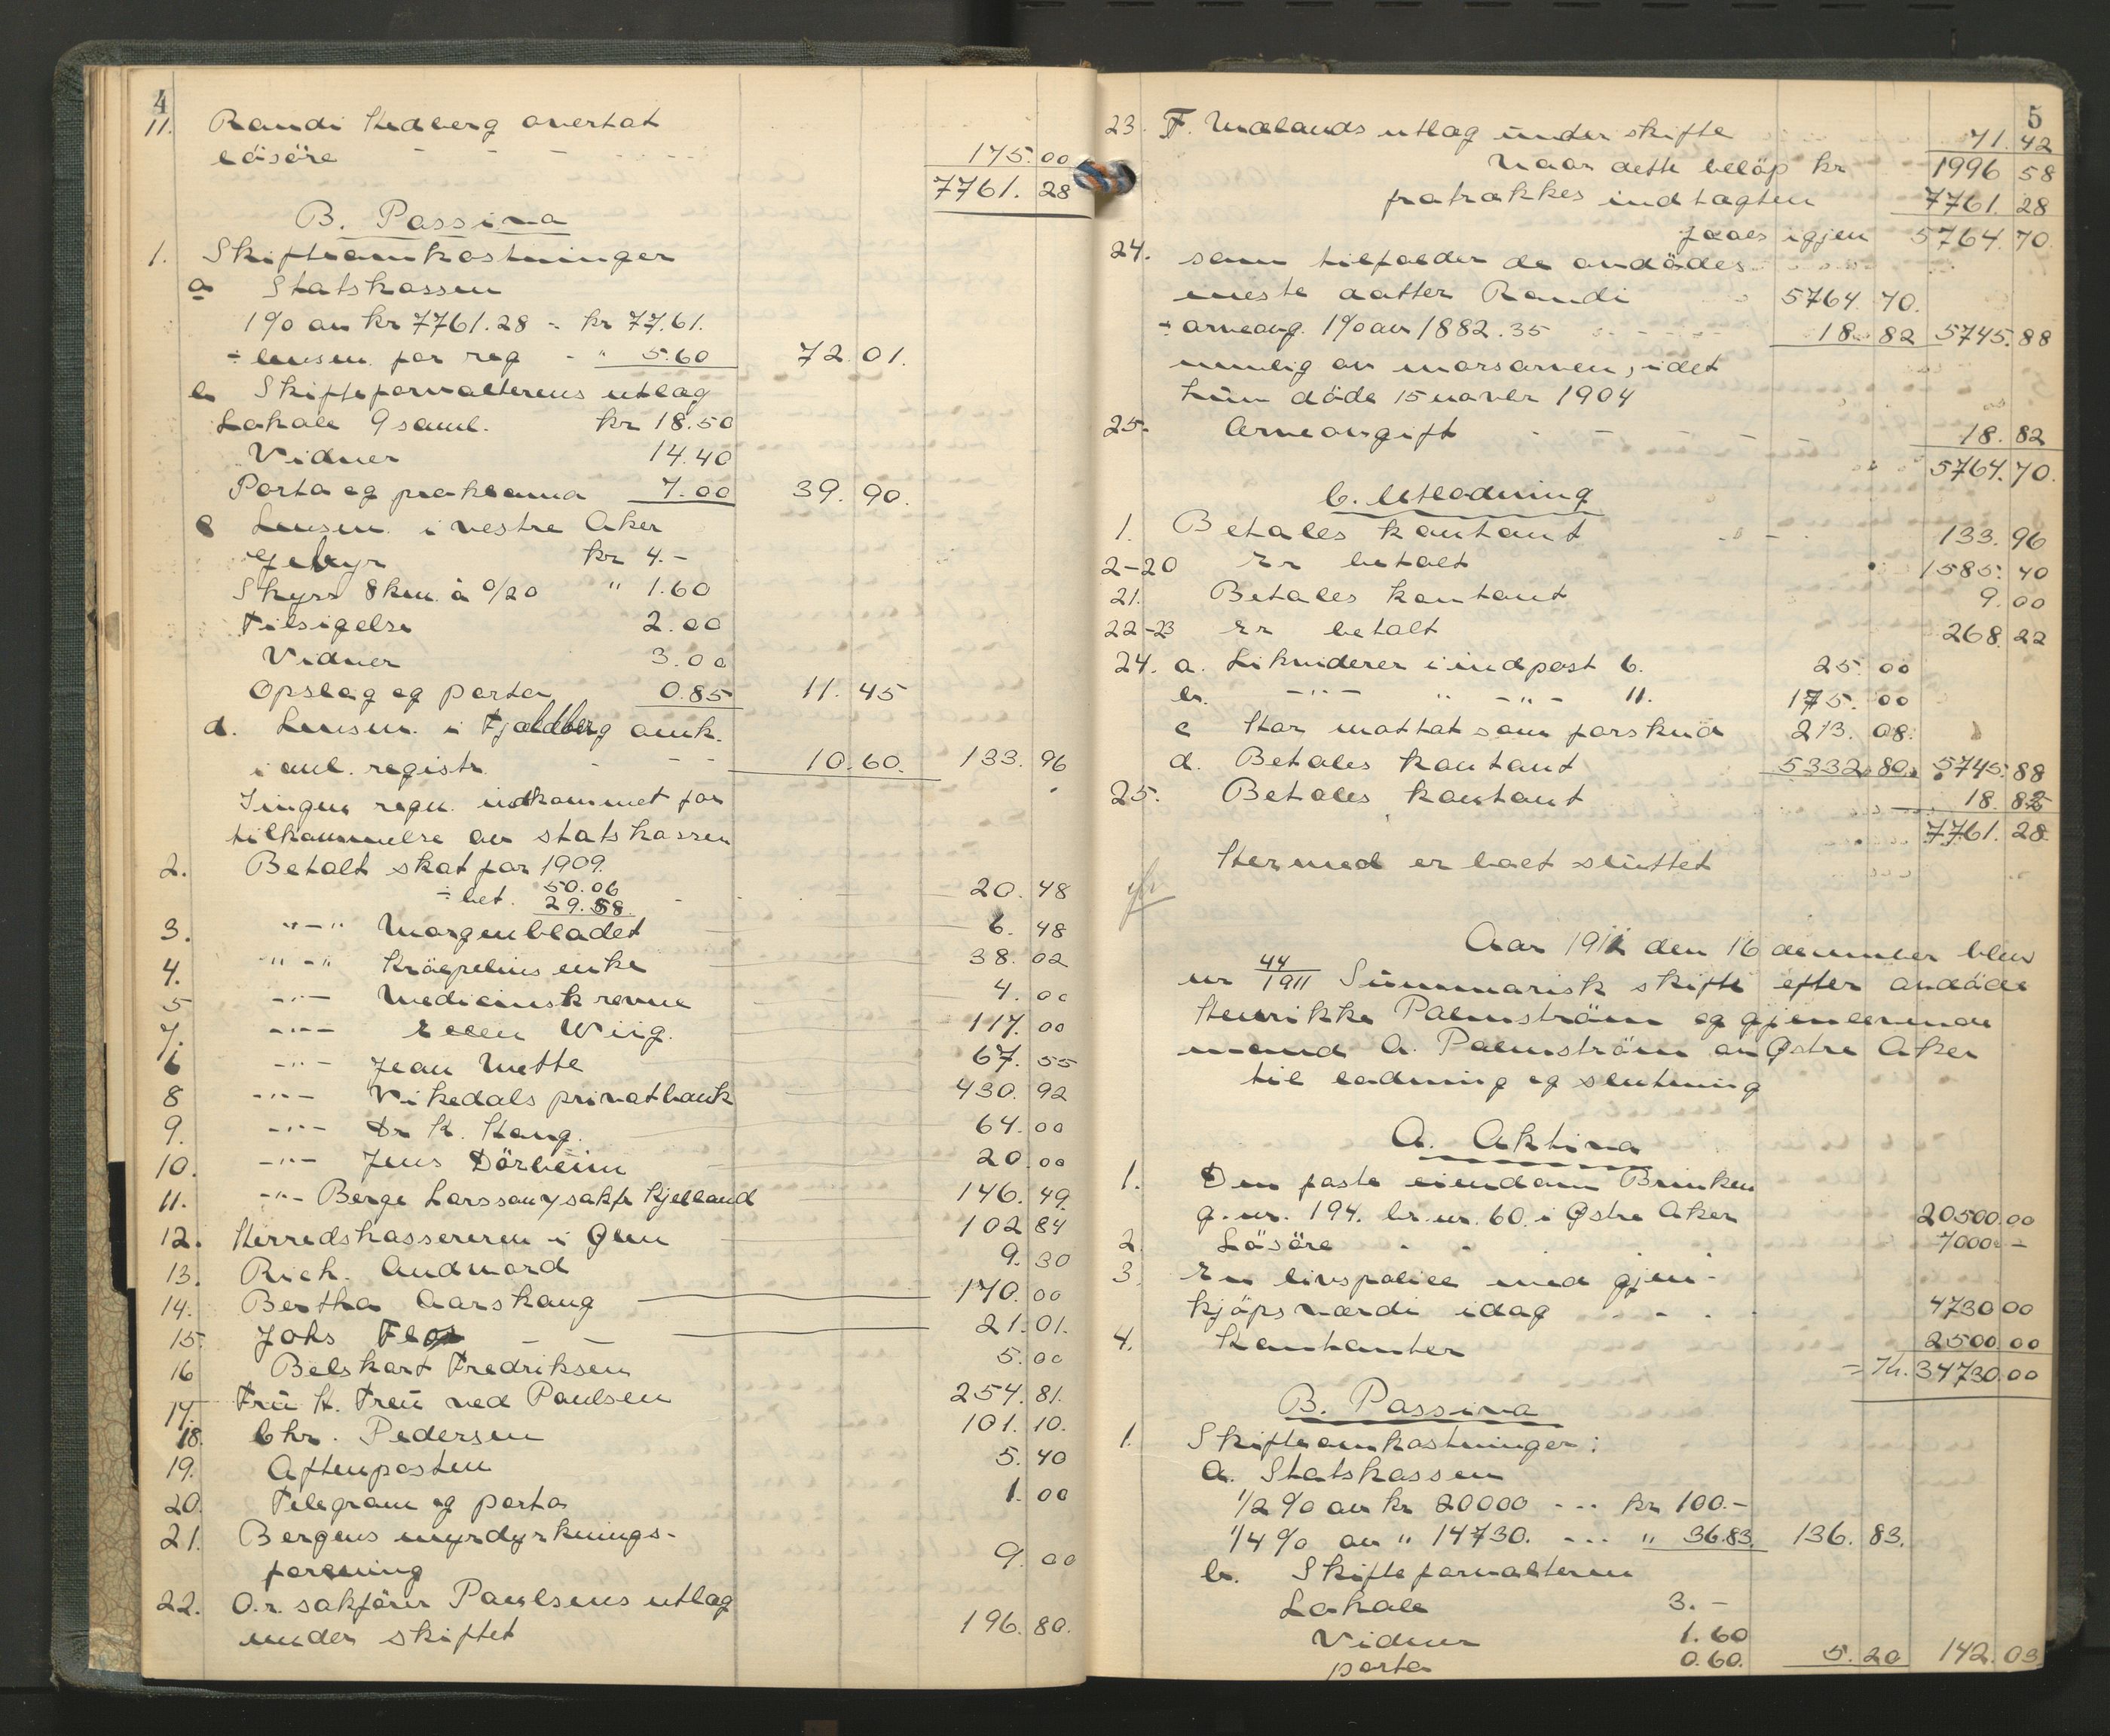 4
11. Randi Stedberg overtat
lösöre - - - 175.00
7761.28
B. Passiva
1. Skifteomkostninger
a Statskassen
1% av kr 7761.28 = kr 77.61.
÷ lensm. for reg - " 5.60 72.01.
b Skifteforvalterens utlæg
Lokale 9 saml. kr 18.50
Vidner 14.40
Porto og proklama 7.00 39.90.
c Lensm. i vestre Aker
Gebyr kr 4.-
Skyss 8 km. à 0/20 " 1.60
Tilsigelse 2.00
Vidner 3.00
Opslag og porto 0.85 11.45
d. Lensm. i Fjeldberg omk.
i anl. registr. - - - 10.60. 133.96
Ingen regn. indkommet for
tilkommelse av statskassen
2. Betalt skat for 1909.
50.06
÷ bet. 29.58. - 20.48
3. "-" Morgenbladet 6.48
4. "-" Kräpelins enke 38.02
5 -"- Medicinsk revue 4.00
7. -"- Ellen Wiig. 117.00
6 -"- Jean Mette 67.55
8 -"- Vikedals privatbank 430.92
9. -"- Dr K. Stang. 64.00
10. -"- Jens Dörheim 20.00
11. -"- Berge Larsson v/ sakf. Kjelland 146.49.
12. Herredskassereren i Ølen 102.84
13. Rich. Andvord 9.30
14. Bertha Aarskaug 170.00
15. Johs Flor - - 21.01.
16 Belskort Fredriksen 5.00
17. Fru H. Freu ved Paulsen 254.81.
18. Chr. Pedersen 101.10.
19. Aftenposten 5.40
20. Telegram og porto 1.00
21. Bergens myrdyrknings-
forening 9.00
22. O.r. sakförer Paulsens utlæg
under skiftet 196.80.
5
23. F. Mælands utlæg under skifte 71.42
Naar dette belöp kr 1996 58
fratrækkes indtægten 7761.28
faaes igjen 5764.70.
24. som tilfalder de avdödes
eneste datter Randi 5764 70.
÷ arveavg. 1% av 1882.35 18.82 5745.88
nemlig av morsarven, idet
hun döde 15 novbr 1904
25. Arveavgift - - - 18.82
5764.70.
C. Utlodning
1. Betales kontant 133.96
2-20 Er betalt 1585.40
21. Betales kontant 9.00
22-23 Er betalt 268.22
24. a. Likviderer i indpost 6. 25.00
b. -"- " -"- 11. 175.00
c Har mottat som forskud 213.08.
d. Betales kontant 5332.80. 5745.88
25. Betales kontant 18.82
7761.28.
Hermed er boet sluttet
Aar 1912 den 16 december blev
nr 44/1911 Summarisk skifte efter avdöde
Henrikke Palmström og gjenlevende
mand A. Palmström av Østre Aker
til lodning og slutning
A. Aktiva
1. Den faste eiendom Brinken
g.nr. 194. br.nr. 60. i Østre Aker 20500.00
2. Lösöre - - 7000.-
3. En livspolice med gjen-
kjöpsværdi idag - - . 4730 00
4. Kontanter 2500 00
= Kr. 34730.00
B. Passiva
1. Skifteomkostninger:
a. Statskassen
1/2% av kr 20000 --- kr 100.-
1/4% av " 14730. --- " 36.83. 136.83.
b. Skifteforvalteren
Lokale 3.-
Vidner 1.60
porto 0.60. 5.20 142.03